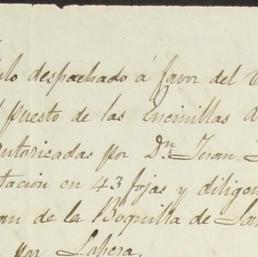 ulo despachado á favor del
puesto de las Encinillas
utorizadas por Dn. Juan
tación en 43 fojas y diligen
an de la Boquilla de San
por Lobera.